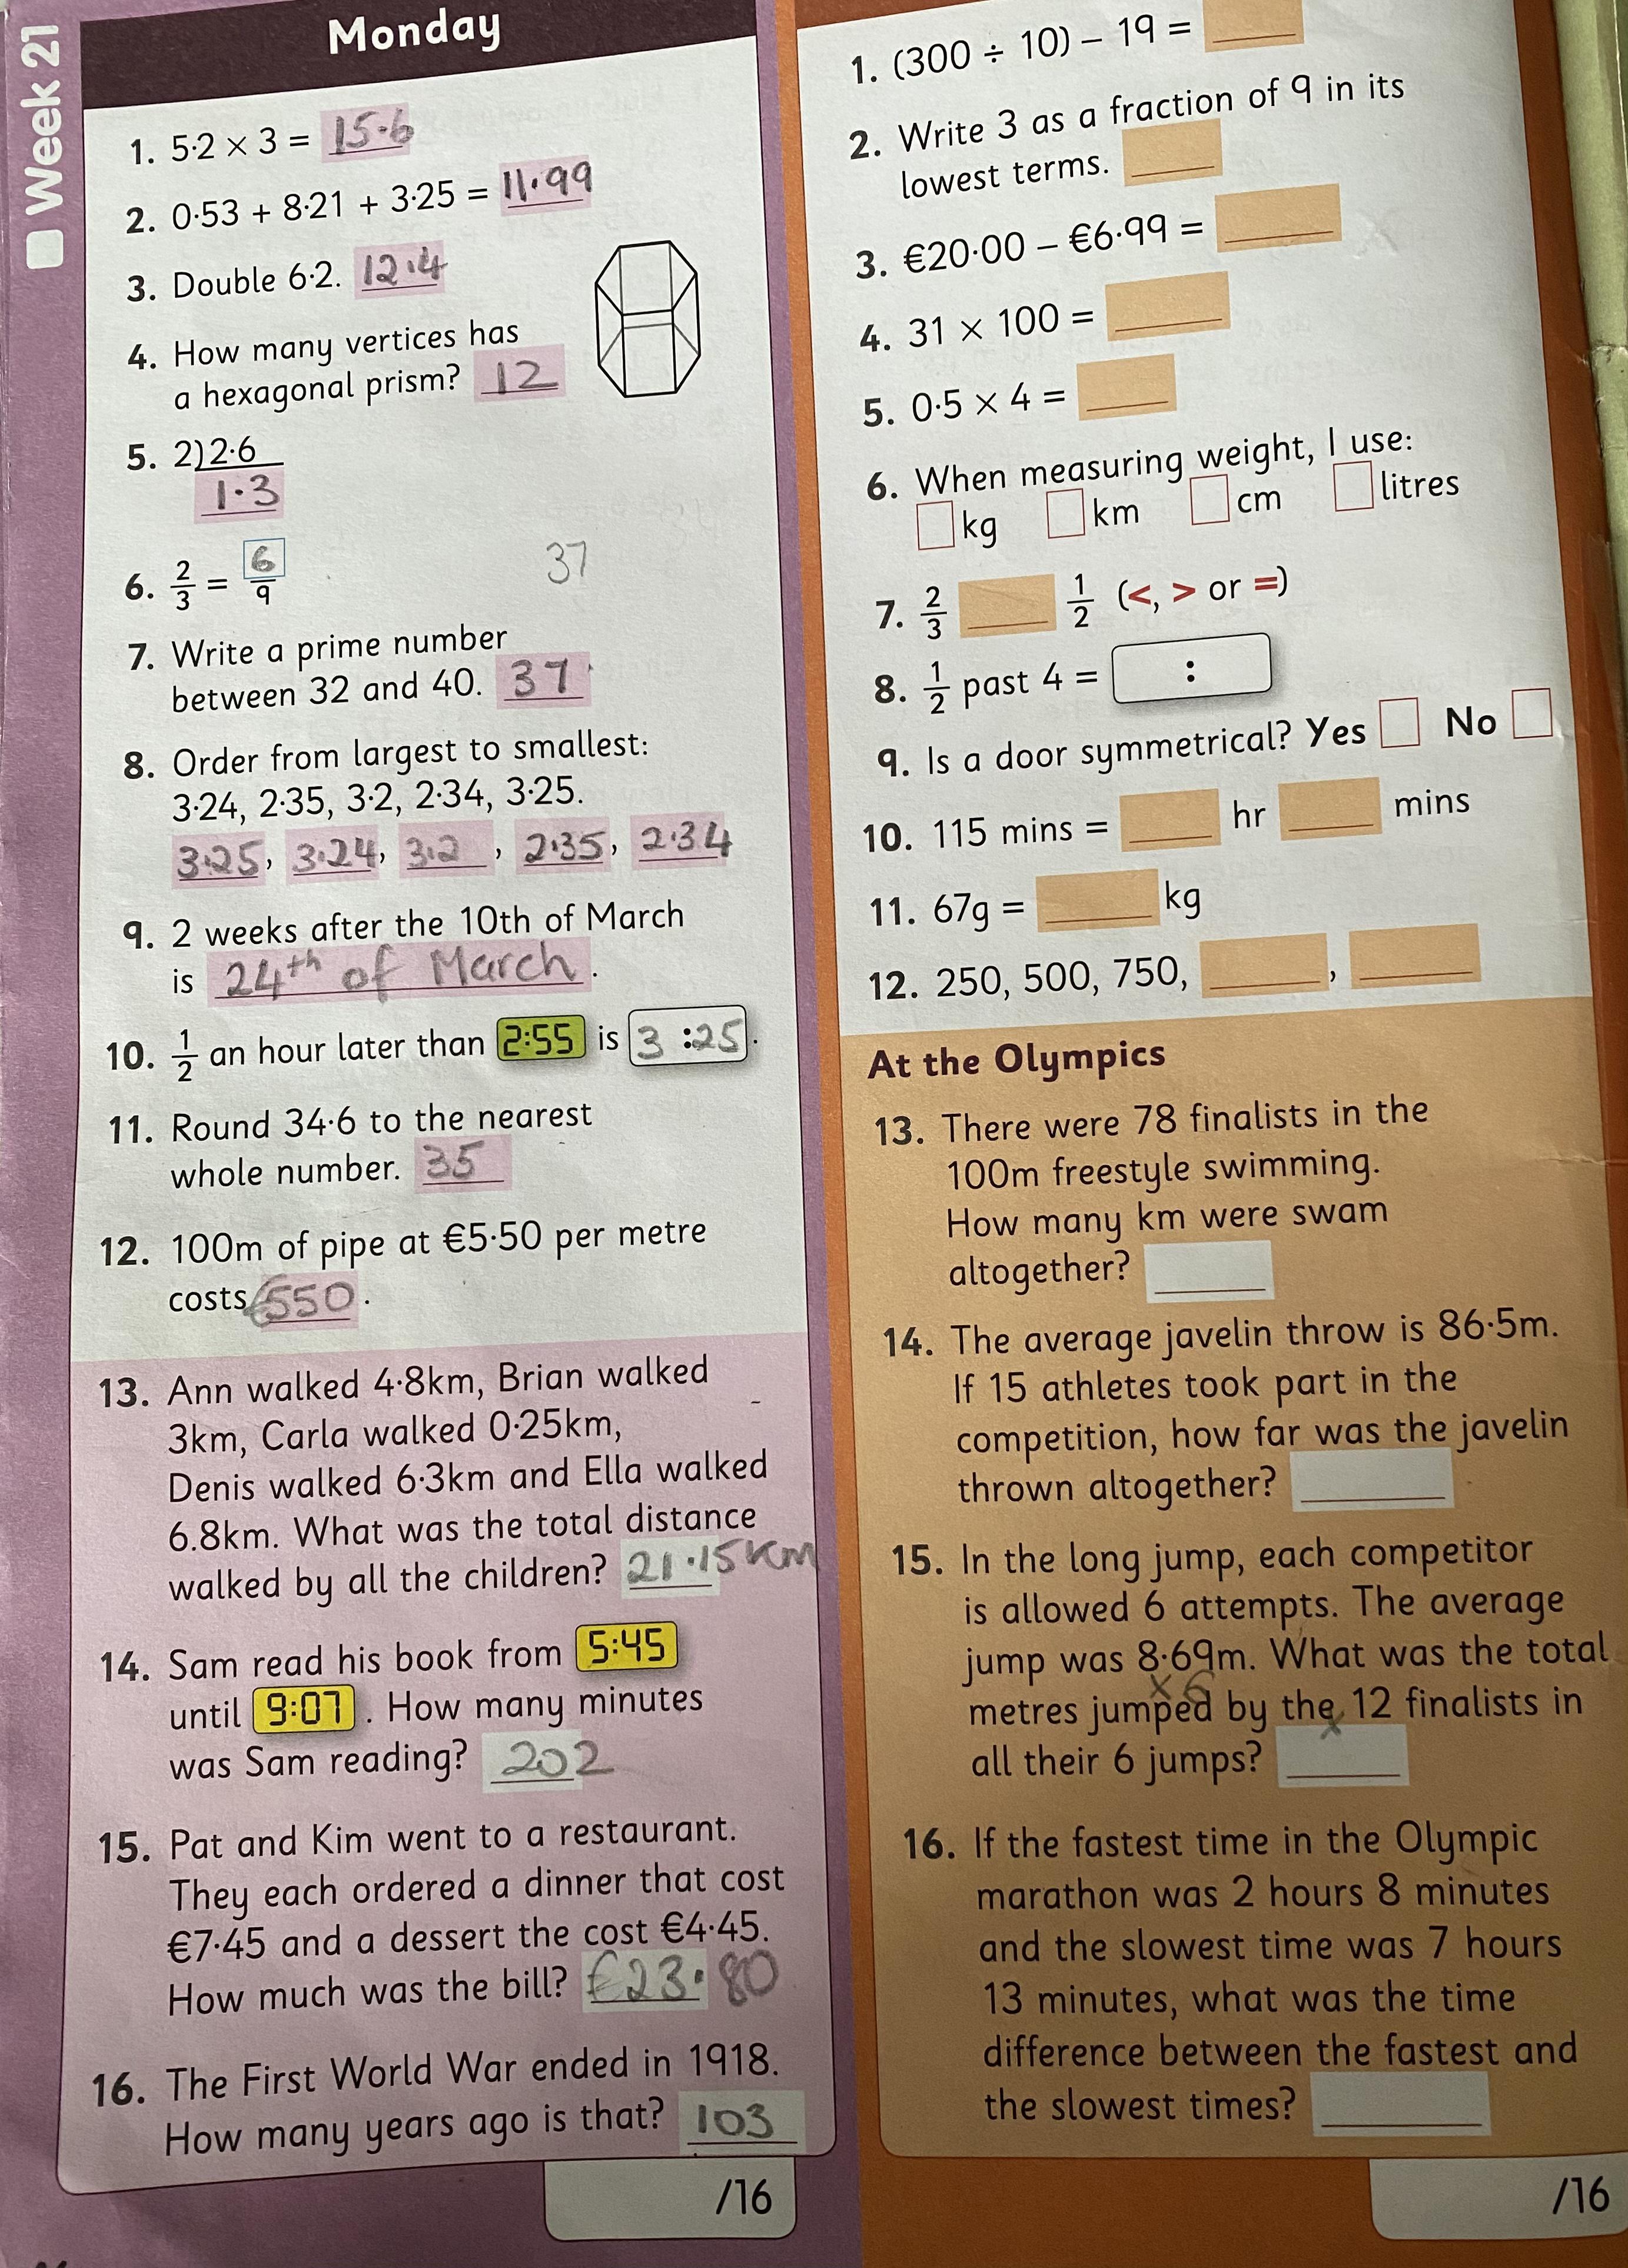 Week 21
Monday
1. 5·2 × 3 = 15·6
2. 0·53 + 8·21 + 3·25 = 11·99
3. Double 6·2. 12·4
4. How many vertices has
a hexagonal prism? 12
5. 2)2·6
1·3
6. 2/3 = 6/9
37
7. Write a prime number
between 32 and 40. 37
8. Order from largest to smallest:
3·24, 2·35, 3·2, 2·34, 3·25.
3·25, 3·24, 3·2, 2·35, 2·34
9. 2 weeks after the 10th of March
is 24th of March.
10. 1/2 an hour later than 2:55 is 3:25.
11. Round 34·6 to the nearest
whole number. 35
12. 100m of pipe at €5·50 per metre
costs €550.
13. Ann walked 4·8km, Brian walked
3km, Carla walked 0·25km,
Denis walked 6·3km and Ella walked
6.8km. What was the total distance
walked by all the children? 21·15km
14. Sam read his book from 5:45
until 9:07. How many minutes
was Sam reading? 202
15. Pat and Kim went to a restaurant.
They each ordered a dinner that cost
€7·45 and a dessert the cost €4·45.
How much was the bill? €23·80
16. The First World War ended in 1918.
How many years ago is that? 103
/16
1. (300 ÷ 10) – 19 =
2. Write 3 as a fraction of 9 in its
lowest terms.
3. €20·00 – €6·99 =
4. 31 × 100 =
5. 0·5 × 4 =
6. When measuring weight, I use:
kg km cm litres
7. 2/3 1/2 (<, > or =)
8. 1/2 past 4 = :
9. Is a door symmetrical? Yes No
10. 115 mins = hr mins
11. 67g = kg
12. 250, 500, 750, ,
At the Olympics
13. There were 78 finalists in the
100m freestyle swimming.
How many km were swam
altogether?
14. The average javelin throw is 86·5m.
If 15 athletes took part in the
competition, how far was the javelin
thrown altogether?
15. In the long jump, each competitor
is allowed 6 attempts. The average
jump was 8·69m. What was the total
× 6
metres jumped by the 12 finalists in
×
all their 6 jumps?
16. If the fastest time in the Olympic
marathon was 2 hours 8 minutes
and the slowest time was 7 hours
13 minutes, what was the time
difference between the fastest and
the slowest times?
/16